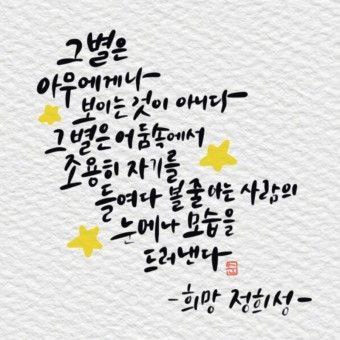 그 별은
아무에게나
보이는 것이 아니다
그 별은 어둠속에서
조용히 자기를
들여다 볼 줄 아는 사람의
눈에나 모습을
드러낸다
-희망 정희성-